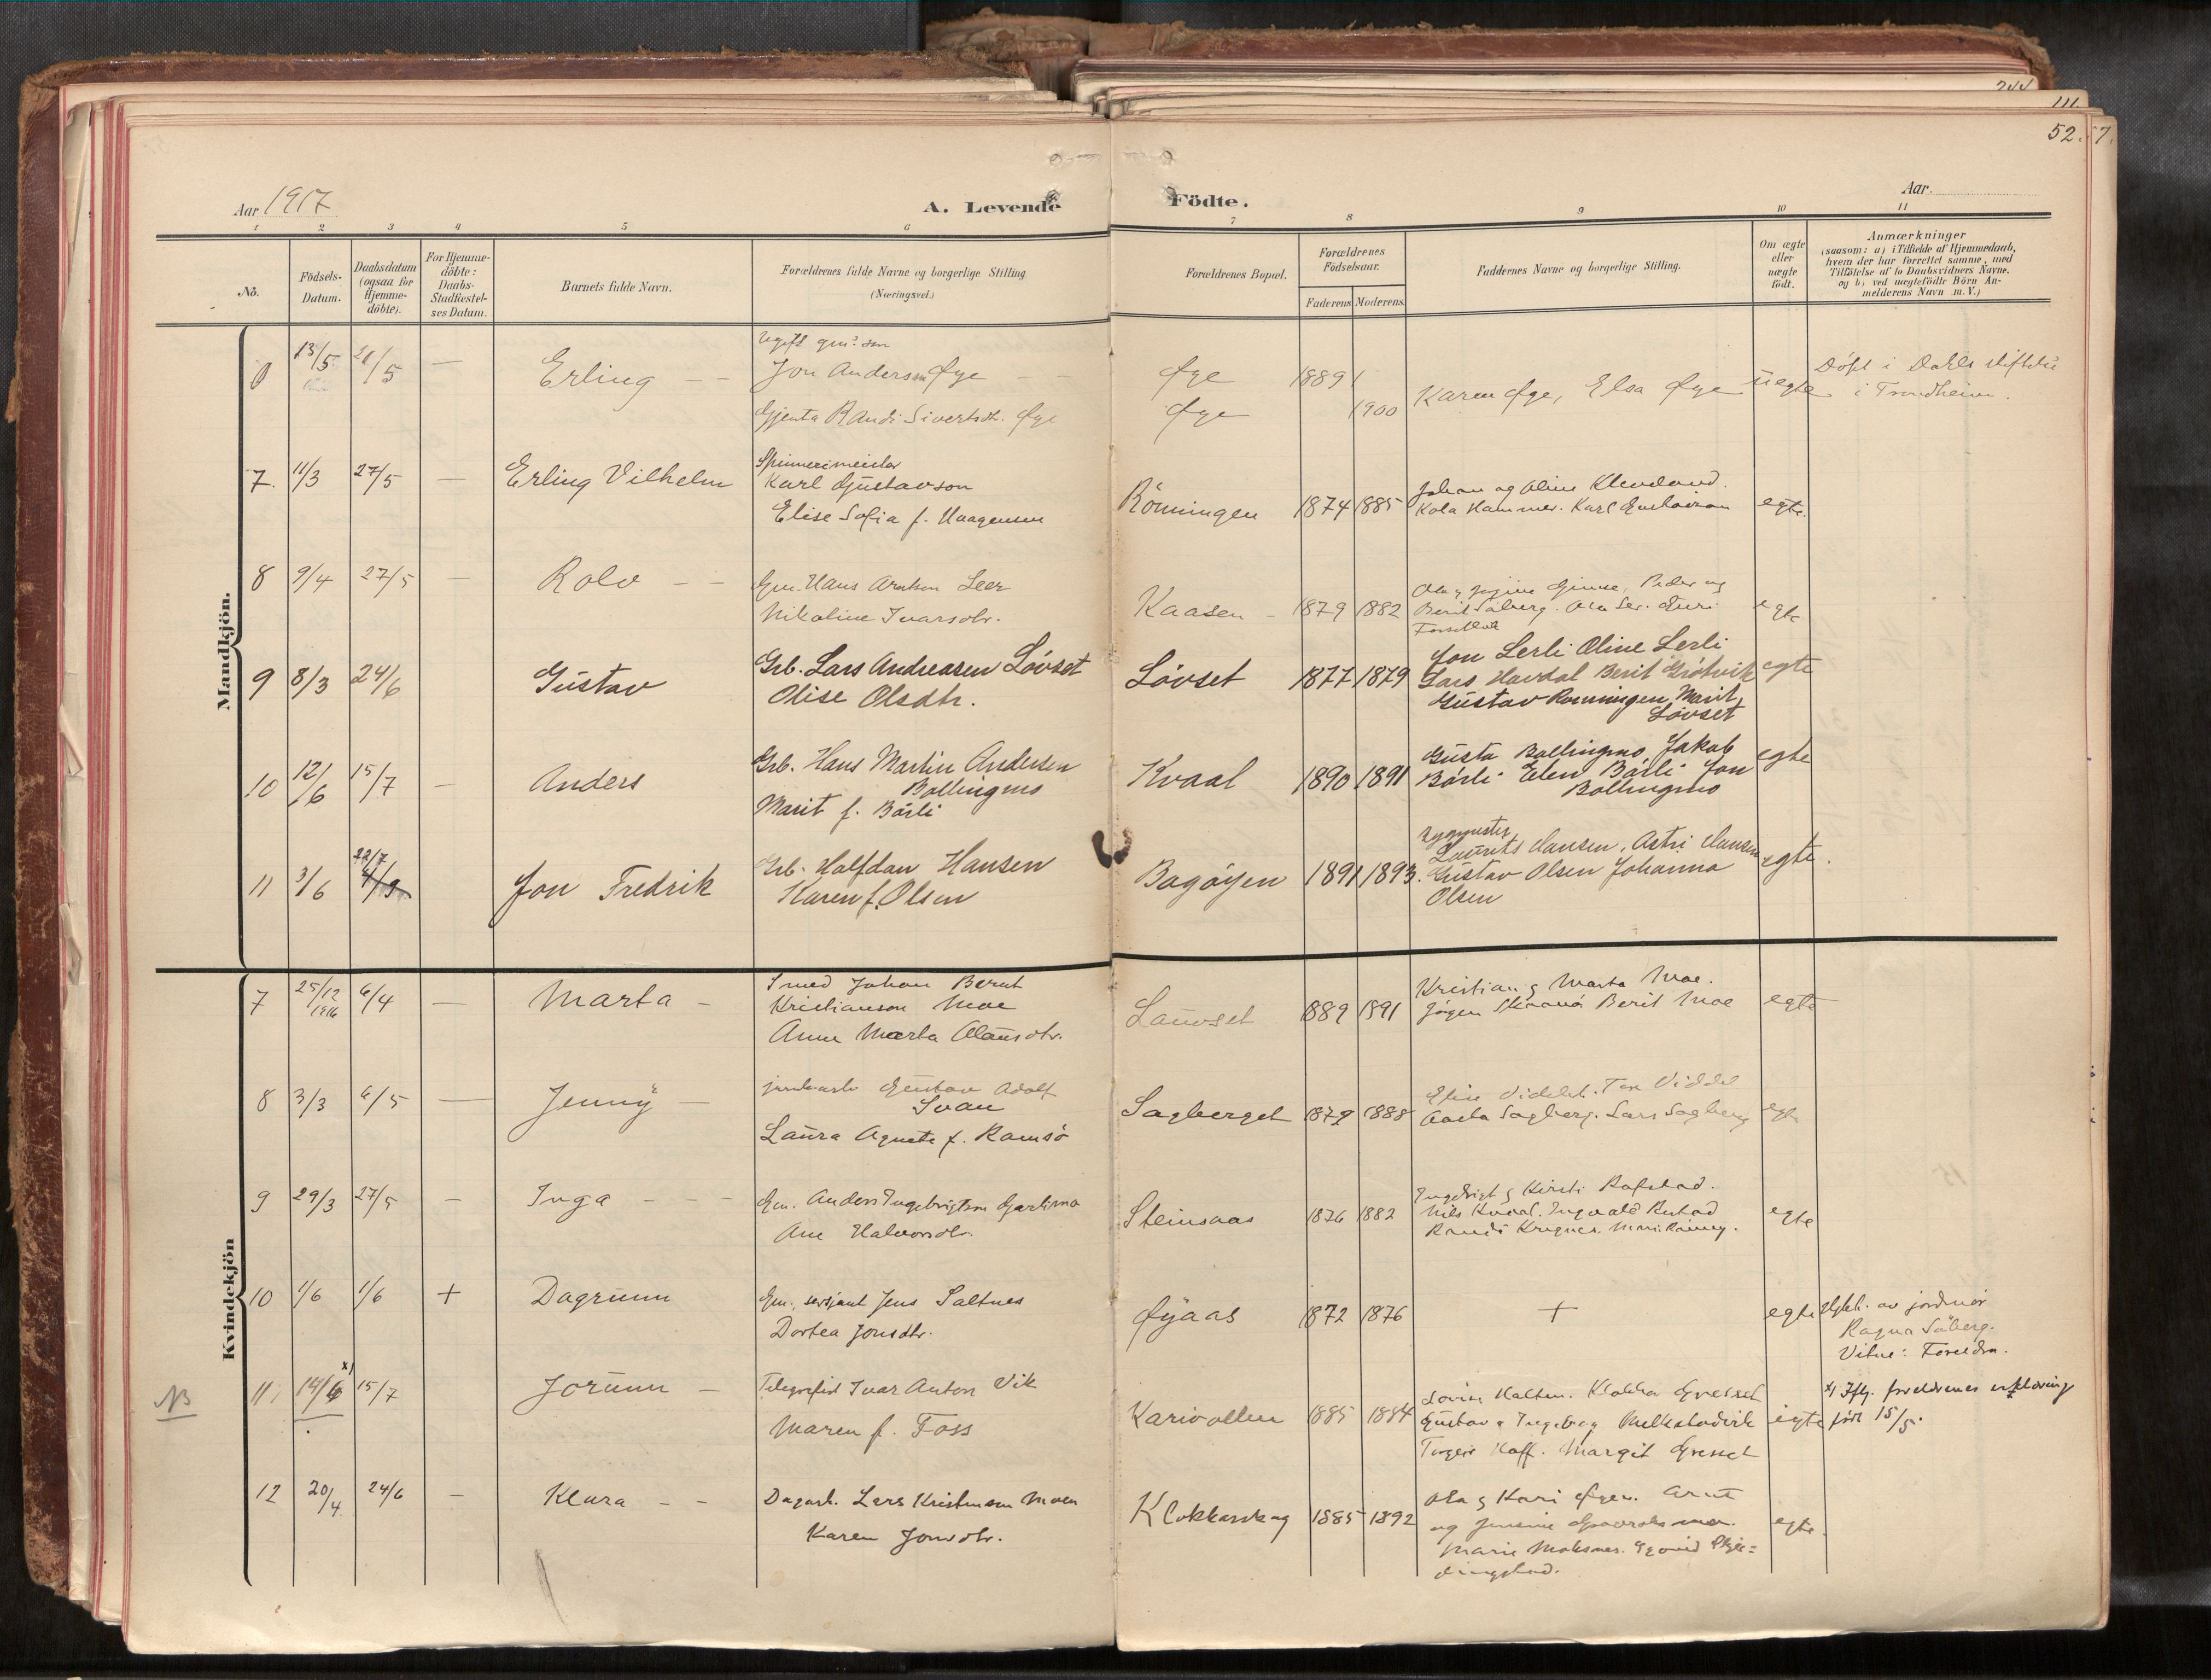 244
111.
52. 57.
Aar 1917
A. Levende Födte.
Aar
1 2 3 4 5 6 7 8 9 10 11
No.
Födsels-
Datum.
Daabsdatum
(ogsaa for
Hjemme-
döbte).
For Hjemme-
döbte:
Daabs-
Stadfiestel-
ses Datum.
Barnets fulde Navn.
Forældrenes fulde Navne og borgerlige Stilling
(Næringsvei.)
Forældrenes Bopæl.
Forældrenes
Födselsaar.
Faderens Moderens
Faddernes Navne og borgerlige Stilling.
Om ægte
eller
uægte
födt.
Anmærkninger
(saasom: a) i Tilfælde af Hjemmedaab,
hvem der har forrettet samme, med
Tilföielse af to Daabsvidners Navne.
og b) ved uægtefödte Börn An-
melderens Navn m. V.)
Mandkjön.
13/5 20/5 — Erling — —
Ugift gm. søn
Jon Anderssøn Øye
Gjenta Randi Sivertsdtr. Øye
Øye 1889
Øye 1900
Karen Øye, Elsa Øye
uegte
Døpt i Dahls stiftelse
i Trondheim.
7. 11/3 27/5 — Erling Vilhelm
Spinnerimester
Karl Gustavson
Elise Sofia f. Haagensen
Rönningen 1874 1885
Johan og Oline Klevland.
Kola Hammer. Karl Gustavson
egte.
8 9/4 27/5 — Rolv — —
Gm. Hans Arntsen Leer
Nikoline Ivarsdtr.
Kaasen 1879 1882
Ola g Jogine Gimse, Peder og
Berit Søberg. Ola Ler. Guri
egte
9 8/3 24/6 Gustav
Grb. Lars Andreasen Lövset
Olise Olsdtr.
Lövset 1877 1879
Jon Lerli Oline Lerli
Lars Havdal Berit Grötvik
Gustav Rönningen, Marit
Lövset
egte
10 12/6 15/7 — Anders
Grb. Hans Martin Andersen
Bollingmo
Marit f. Bårli
Kvaal 1890 1891
Gusta Bollingmo Jakob
Bårli Elen Bårli Jon
Bollingmo
egte
11 3/6 22/7 Jon Fredrik
Grb. Halfdan Hansen
Karen f. Olsen
Bagöyen 1891 1893.
Bygmester
Laurits Hansen, Astri Hansen
Gustav Olsen Johanna
Olsen
egte.
Kvindekjön
7 25/12 1916 6/4 — Marta —
Smed Johan Bernt
Kristianson Moe
Anne Marta Olausdtr.
Lauvset 1889 1891
Kristian g Marta Moe.
Jörgen Skaanö Berit Moe
egte
8 3/3 6/5 — Jenny —
Gustav Adolf
Svan
Laura Agnete f. Ramsö
Sagberget 1879 1888
Elise Viddal. Tore Viddal
Aasta Sagberg. Lars Sagberg
egte
9 29/3 27/5 — Inga — — —
Gm. Anders Ingebrigtsen
Ane Halvorsdtr.
Steinsaas 1876 1882
Ingebrigt g Kirsti Rofstad.
Nils Kvaal. Ingvald Rustad
egte
10 1/6 1/6 + Dagrunn
Gm., sersjant Jens Saltnes
Dortea Jonsdtr.
Øyaas 1872 1876
+
egte
Hjdt. av jordmor
Ragna Söberg.
Vitne: Foreldra.
NB
11 14/6 x) 15/7 Jorunn —
Telegrafist Ivar Anton Vik
Maren f. Foss
Karivollen 1885 1884
Lovise Halten. Klokker Gresset
Gustav g Ingeborg Melkstadvik
Hoff. Margit Gresset
egte
x) Iflg. foreldrenes erklæring
född 15/5.
12 20/4 24/6 — Klara — —
Dagarb. Lars Kristensen Moen
Karen Jonsdtr.
Klokkarskag 1885 1892
Ola g Kari Øyen. Arnt
og Jensine
Marie Moksnes. Eyvind
egte.